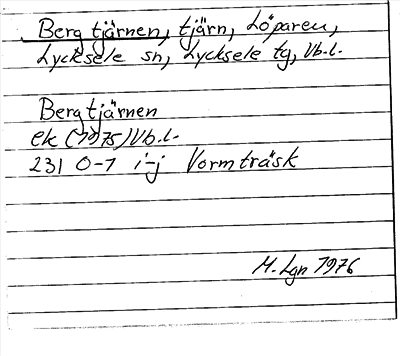 Bergtjärnen, tjärn, Löparen,
Lycksele sn, Lycksele tg, Vb.l.
Bergtjärnen
ek (1975) Vb.l.
231 0-1 i-j Vormträsk
M. Lgn 1976